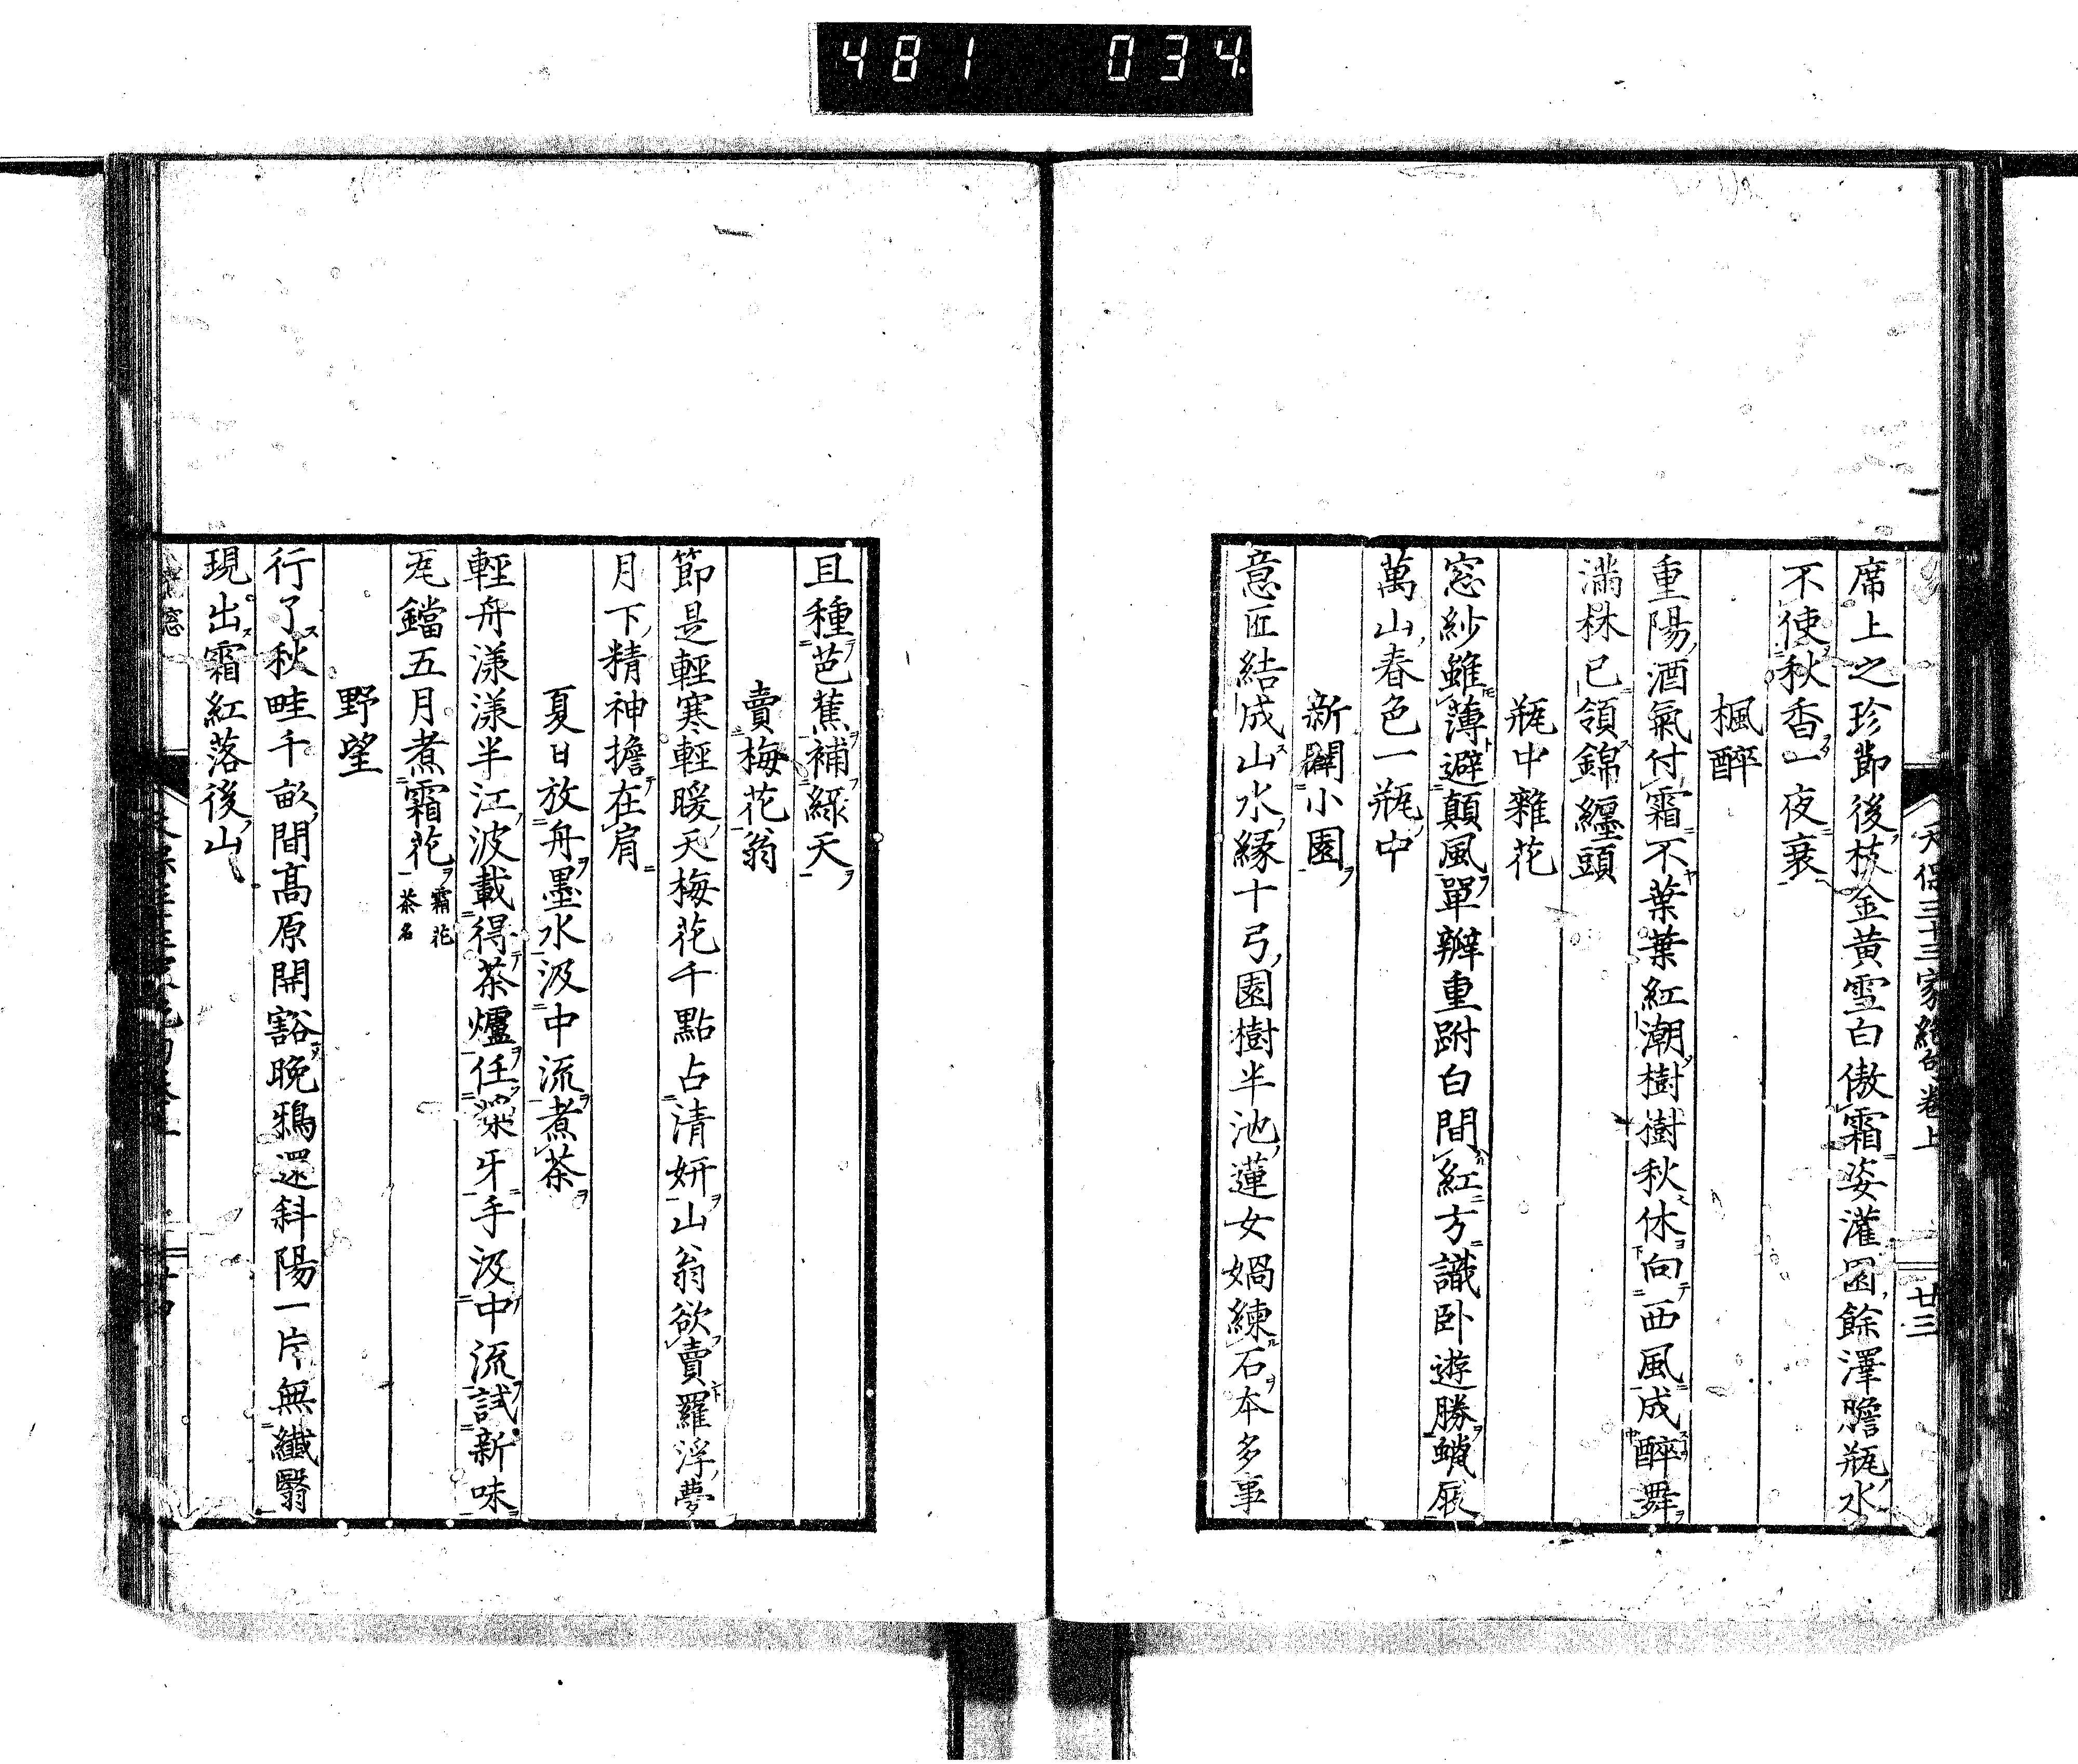 481 034
天保三十三家絶句卷上 廿三
席上之珍節後枝金黄雪白傲霜姿灌園餘澤膽瓶水
不使秋香一夜衰
楓醉
重陽酒氣付霜不葉葉紅潮樹樹秋休向西風成醉舞
滿林已領錦纒頭
瓶中雜花
窓紗雖薄避顛風單瓣重跗白間紅方識卧遊勝蠟屐
萬山春色一瓶中
新闢小園
意匠結成山水縁十弓園樹半池蓮女媧練石本多事
且種芭蕉補緑天
賣梅花翁
節是輕寒輕暖天梅花千點占清妍山翁欲賣羅浮夢
月下精神擔在肩
夏日放舟墨水汲中流煮茶
輕舟漾漾半江波載得茶爐任槳牙手汲中流試新味
瓦鐺五月煮霜花 霜花茶名
野望
行了秋畦千畝間髙原開豁晩鴉還斜陽一片無纎翳
現出霜紅落後山